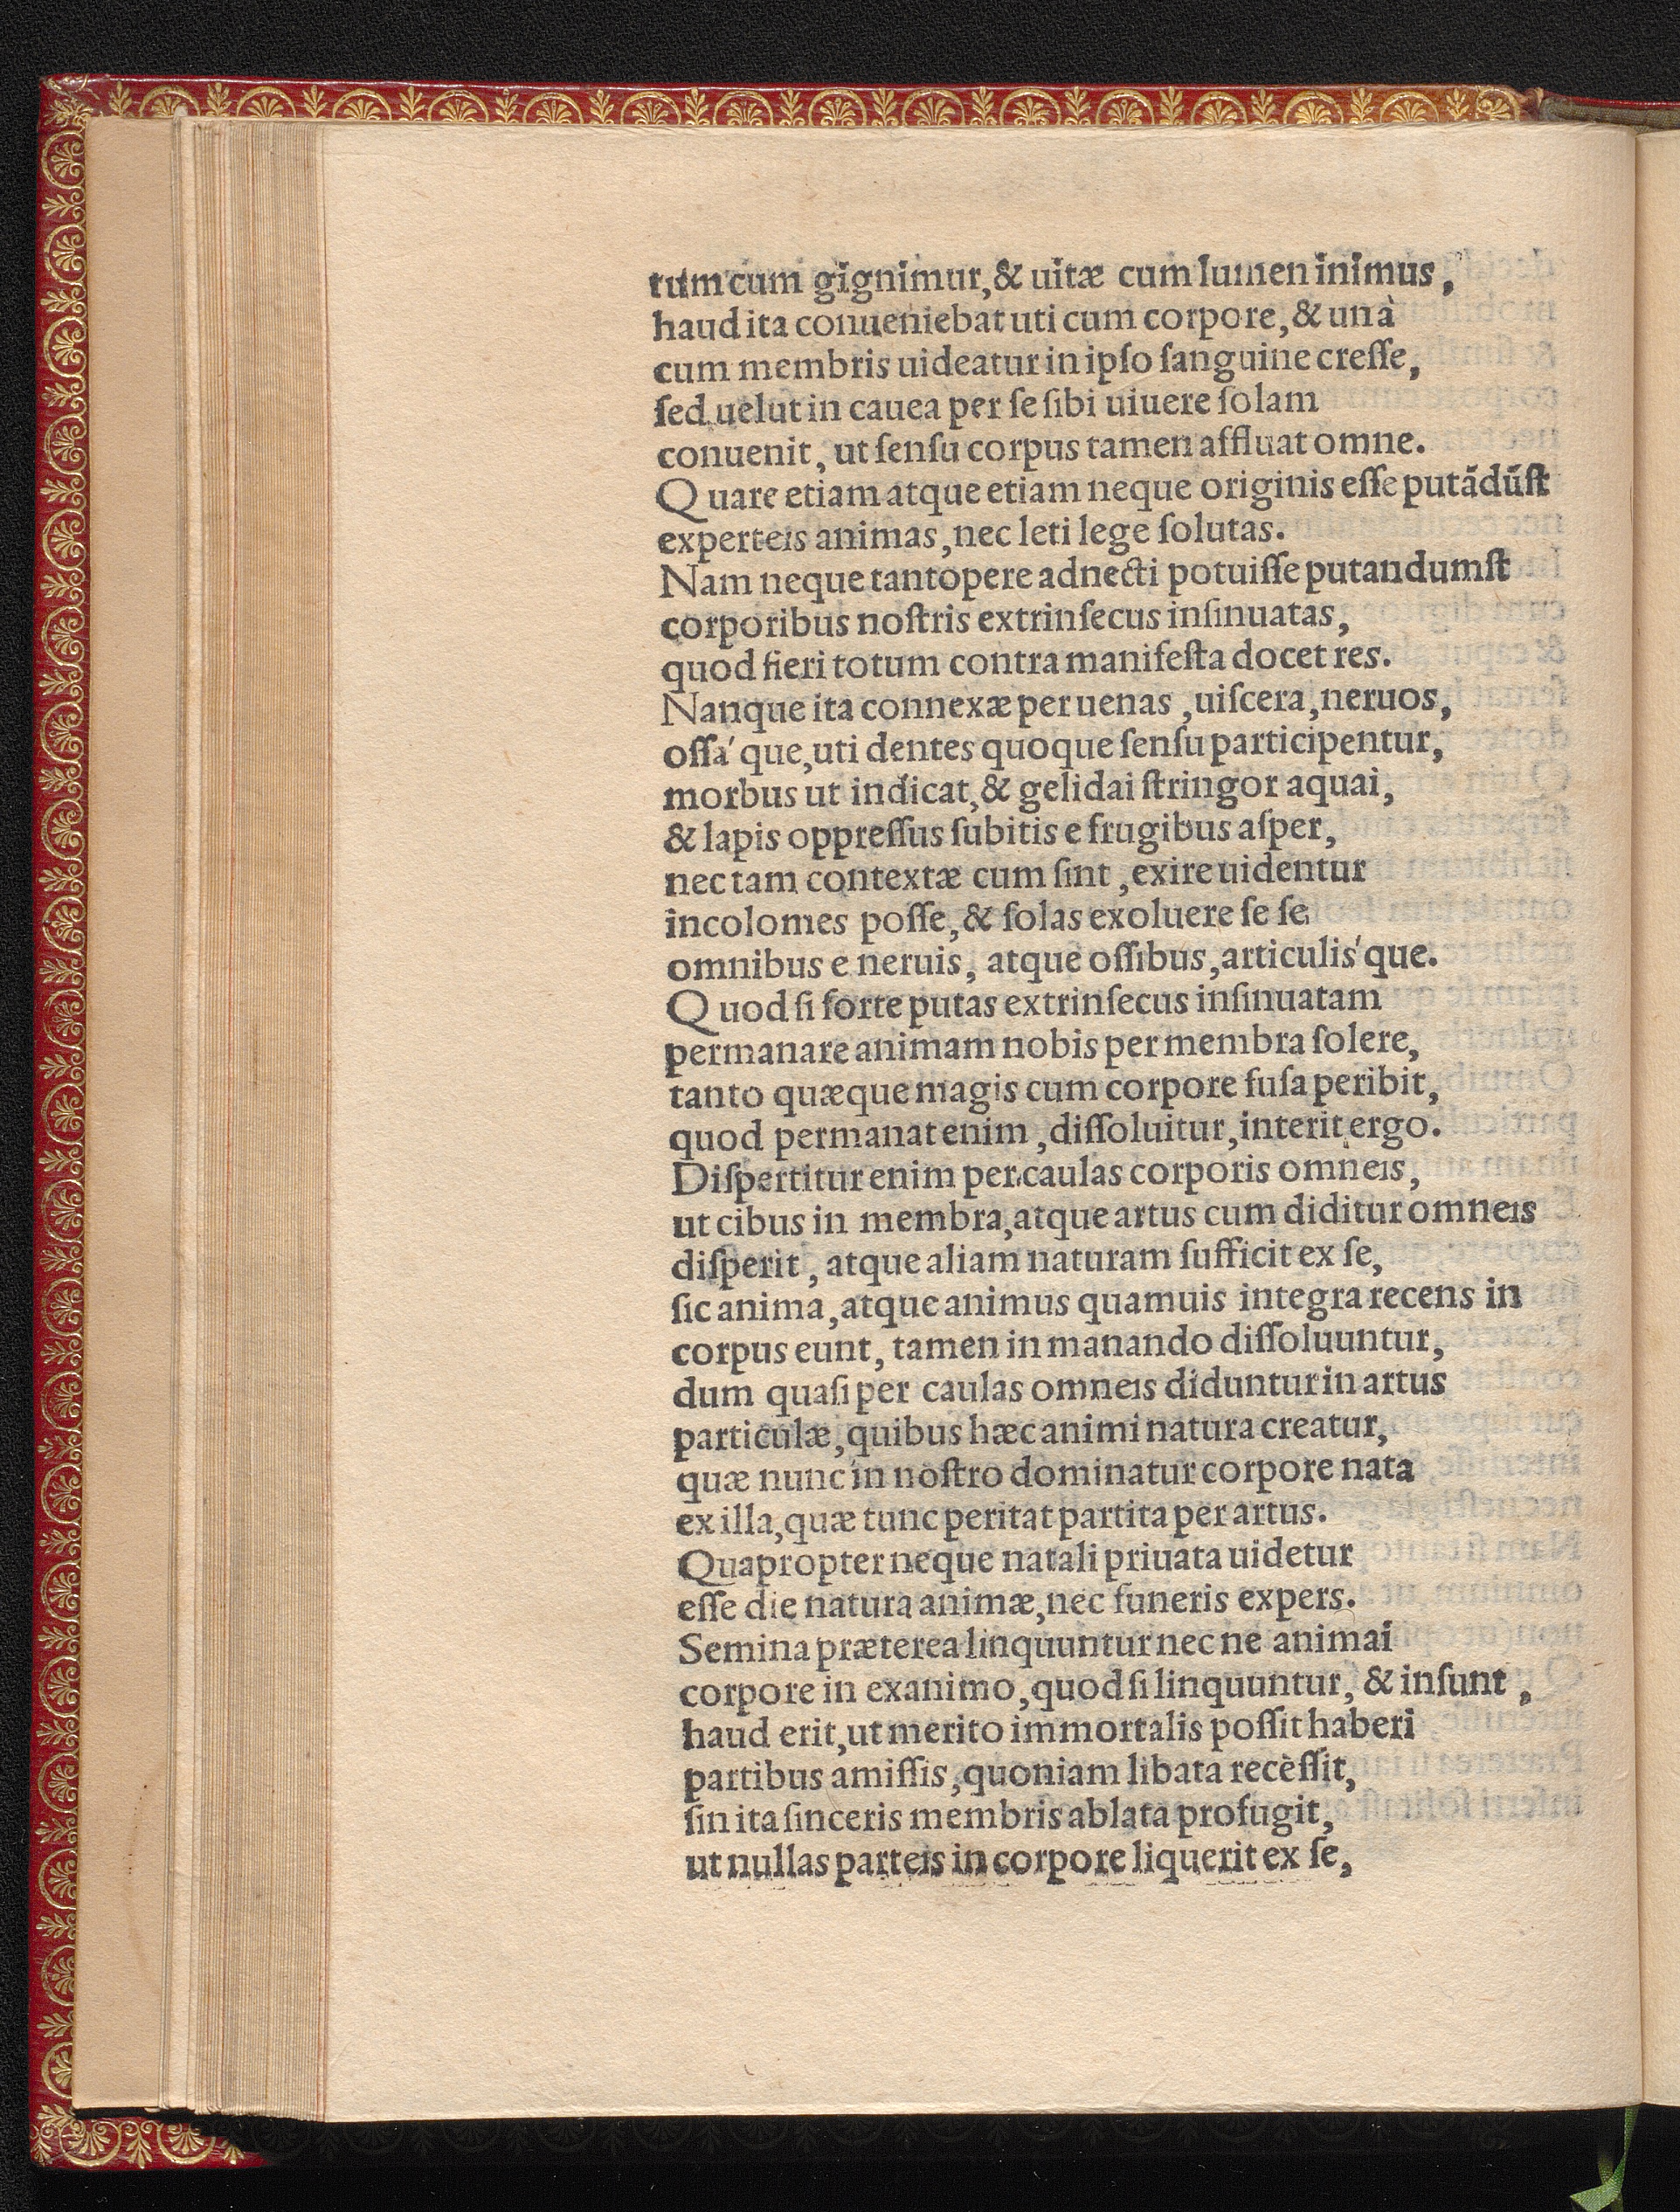 tum cum gignimur, & uitæ cum lumen inimus,
haud ita conueniebat uti cum corpore, & unà
cum membris uideatur in ipſo ſanguine creſſe,
ſed uelut in cauea per ſe ſibi uiuere ſolam
conuenit, ut ſenſu corpus tamen affluat omne.
Quare etiam atque etiam neque originis eſſe putādūſt
experteis animas, nec leti lege ſolutas.
Nam neque tantopere adnecti potuiſſe putandumſt
corporibus noſtris extrinſecus inſinuatas,
quod fieri totum contra manifeſta docet res.
Nanque ita connexæ per uenas, uiſcera, neruos,
oſſa´que, uti dentes quoque ſenſu participentur,
morbus ut indicat, & gelidai ſtringor aquai,
& lapis oppreſſus ſubitis e frugibus aſper,
nec tam contextæ cum ſint, exire uidentur
incolomes poſſe, & ſolas exoluere ſe ſe
omnibus e neruis, atque oſſibus, articulis´que.
Quod ſi forte putas extrinſecus inſinuatam
permanare animam nobis per membra ſolere,
tanto quæque magis cum corpore fuſa peribit,
quod permanat enim, diſſoluitur, interit ergo.
Diſpertitur enim per caulas corporis omneis,
ut cibus in membra, atque artus cum diditur omneis
diſperit, atque aliam naturam ſufficit ex ſe,
ſic anima, atque animus quamuis integra recens in
corpus eunt, tamen in manando diſſoluuntur,
dum quaſi per caulas omneis diduntur in artus
particulæ, quibus hæc animi natura creatur,
quæ nunc in noſtro dominatur corpore nata
ex illa, quæ tunc peritat partita per artus.
Quapropter neque natali priuata uidetur
eſſe die natura animæ, nec funeris expers.
Semina præterea linquuntur nec ne animai
corpore in exanimo, quod ſi linquuntur, & inſunt,
haud erit, ut merito immortalis poſſit haberi
partibus amiſſis, quoniam libata receſſit,
ſin ita ſinceris membris ablata profugit,
ut nullas parteis in corpore liquerit ex ſe,